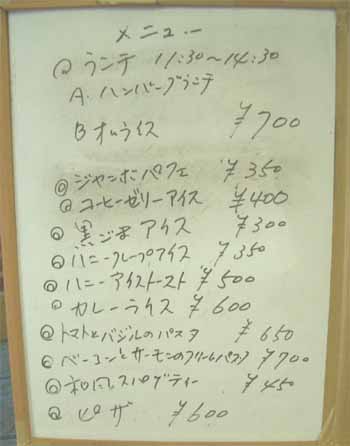 メニュー
◎ ランチ 11:30~14:30
A. ハンバーグランチ
B オムライス ¥700
◎ ジャンボパフェ ¥350
◎ コーヒーゼリーアイス ¥400
◎ 黒ごまアイス ¥300
◎ ハニークレープアイス ¥350
◎ ハニーアイストースト ¥500
○ カレーライス ¥600
◎ トマトとバジルのパスタ ¥650
◎ ベーコンとサーモンのクリームパスタ ¥700
◎ 和風スパゲティー ¥450
◎ ピザ ¥600